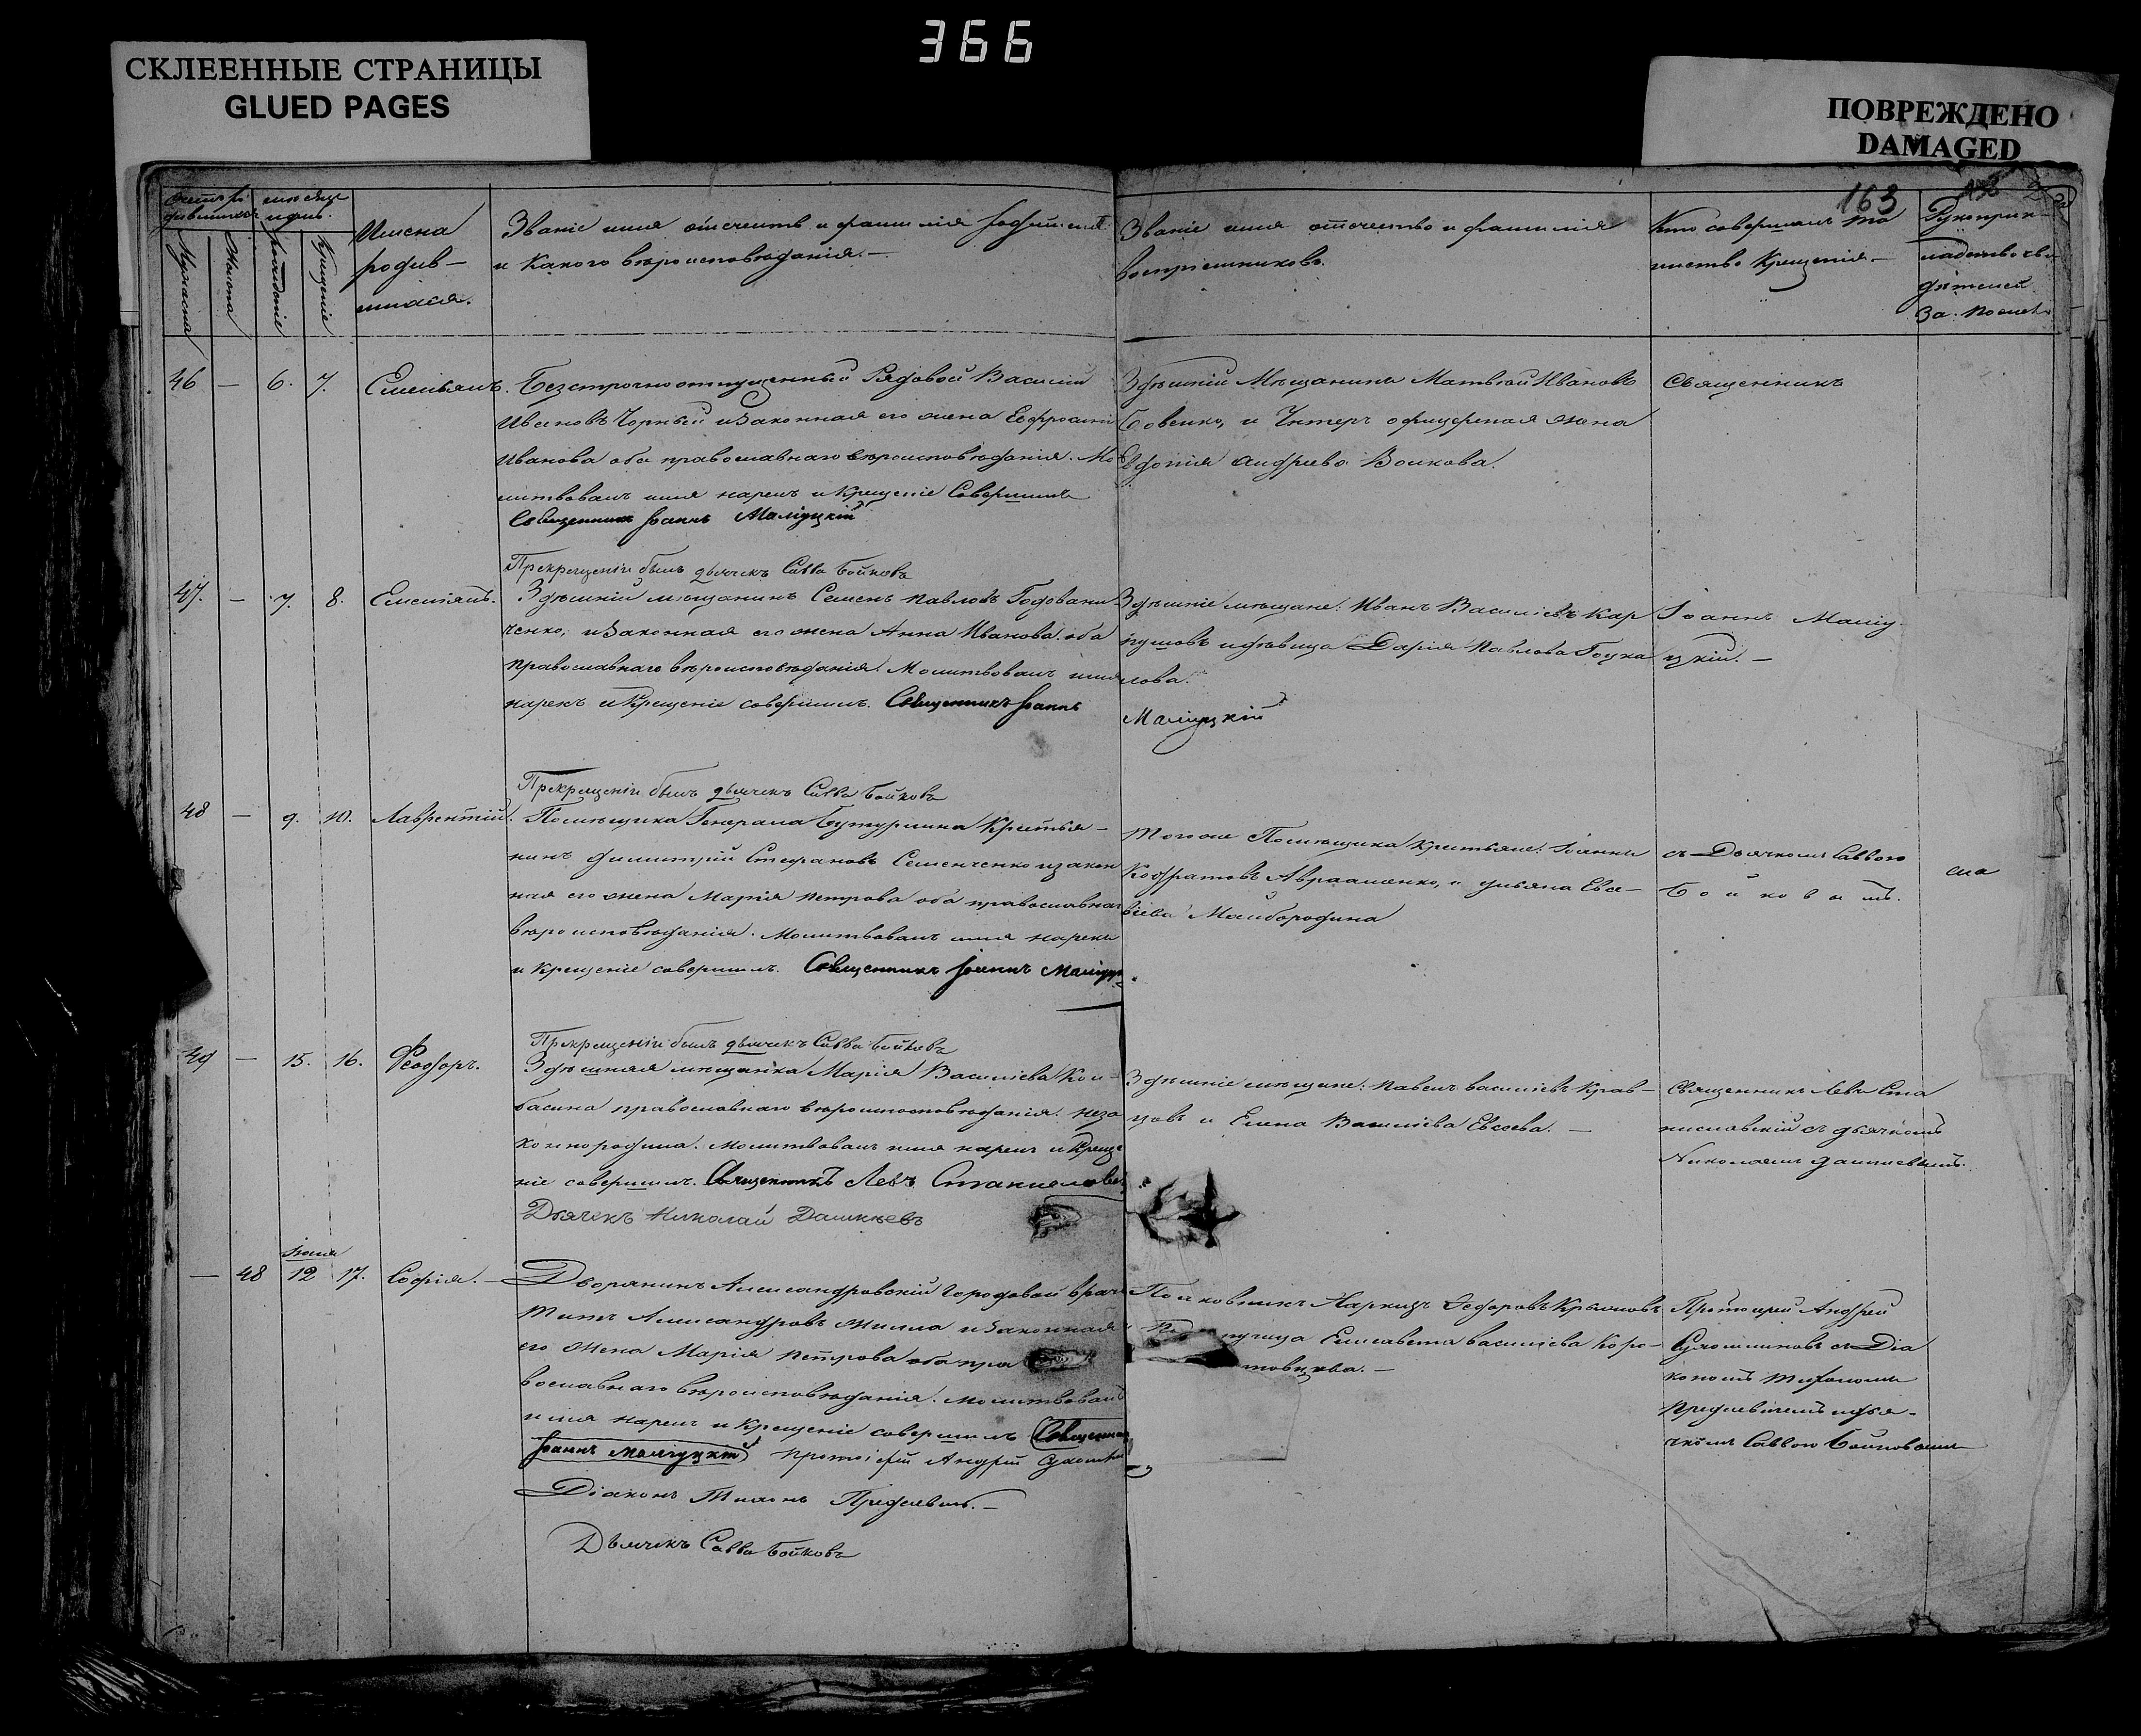 366
СКЛЕЕННЫЕ СТРАНИЦЫ
GLUED PAGES
ПОВРЕЖДЕНО
DAMAGED
163
Мужеска
Женска
Рожденіе
Крещеніе
Имена
родив-
шихся.
Званіе имя отечеств и фамилія
и какого вѣроисповѣданія.—
Званіе имя отечество и фамилія
воспріемниковъ.
Кто совершалъ та
инство крещенія—
Рукоприк
46 — 6. 7.
Емельянъ.
Безсрочноотпущенный Рядовой Василій
Ивановъ Чорный и законная его жена Евфросинія
Иванова оба православнаго вѣроисповѣданія. Мо
литвовалъ имя нарекъ и крещеніе совершилъ
Священникъ Іоаннъ Маліуцкій
Здѣшній Мѣщанинъ Матвѣй Ивановъ
и Унтеръ офицерская жена
Андреева Волкова.
Священникъ
При крещеніи былъ дьячекъ Савва Бойковъ
47. — 7. 8.
Емельянъ.
Здѣшній мѣщанинъ Семенъ Павловъ Годовани
ченко, и законная его жена Анна Иванова оба
православнаго вѣроисповѣданія. Молитвовалъ имя
нарекъ и крещеніе совершилъ. Священникъ Іоаннъ
Здѣшніе мѣщане: Иванъ Василіевъ Кар
пушовъ и дѣвица Дарія Павлова
лова.
Маліуцкій
Іоаннъ Маліу-
цкій.—
При крещеніи былъ дьячекъ Савва Бойковъ
48 — 9. 10.
Лаврентій.
Помѣщика Генерала Бутурлина Крестья-
нинъ Димитрій Стефановъ Семенченко и закон
ная его жена Марія Петрова оба православнаго
вѣроисповѣданія. Молитвовалъ имя нарекъ
и крещеніе совершилъ. Священникъ Іоаннъ Маліуц
Тогоже Помѣщика Крестьяне: Іоаннъ
Кодратовъ Авраменко, и Ульяна Евсе-
віева Майбородина
съ Дьячкомъ Саввою
Бойковымъ.
При крещеніи былъ дьячекъ Савва Бойковъ
49 — 15. 16.
Ѳеодоръ.
Здѣшняя мѣщанка Марія Василіева Кол-
басина православнаго вѣроисповѣданія. Неза
коннорожденна. Молитвовалъ имя нарекъ и креще
ніе совершилъ. Священникъ Левъ Станиславск
Дьячекъ Николай Дашкѣевъ
Здѣшніе мѣщане: Павелъ Василіевъ Крав-
цовъ и Елена Василіева Евсеева.—
Священникъ Левъ Ста
ниславскій съ дьячкомъ
Николаемъ
— 48 12 17.
Софія.—
Дворянинъ Александровскій Городовой врачъ
Титъ Александровъ Жилла и законная
его жена Марія Петрова оба пра
вославнаго вѣроисповѣданія. Молитвовалъ
имя нарекъ и крещеніе совершилъ Священникъ
Іоаннъ Маліуцкій Протоіерей Андрей
Діаконъ Тихонъ
Дьячекъ Савва Бойковъ
Полковникъ Ѳедоровъ
Елисавета Василіева Коро-
Протоіерей Андрей
Сухомлиновъ съ Діа
кономъ Тихономъ
и дья-
чкомъ Саввою Бойковымъ